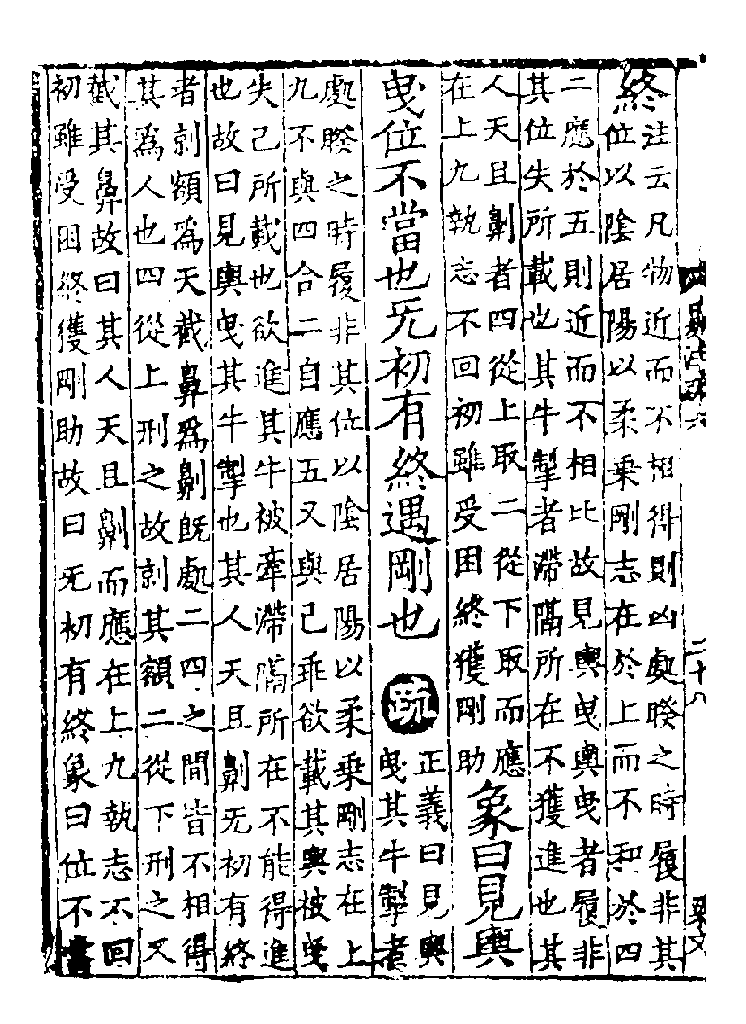 終
注云凡物近而不相得則凶處睽之時履非其
位以陰居陽以柔乗剛志在於上而不和於四
二應於五則近而不相比故見輿曳輿曳者履非
其位失所載也其牛掣者滯隔所在不獲進也其
人天且劓者四從上取二從下取而應
在上九執志不回初雖受困終獲剛助
象曰見輿
曳位不當也无初有終遇剛也
疏
正義曰見輿
曳其牛掣者
處睽之時履非其位以陰居陽以柔乗剛志在上
九不與四合二自應五又與己乖欲載其輿被曳
失己所載也欲進其牛被牽滯隔所在不能得進
也故曰見輿曳其牛掣也其人天且劓无初有終
者剠額爲天截鼻爲劓既處二四之間皆不相得
其爲人也四從上刑之故剠其額二從下刑之又
截其鼻故曰其人天且劓而應在上九執志不回
初雖受困終獲剛助故曰无初有終象曰位不當